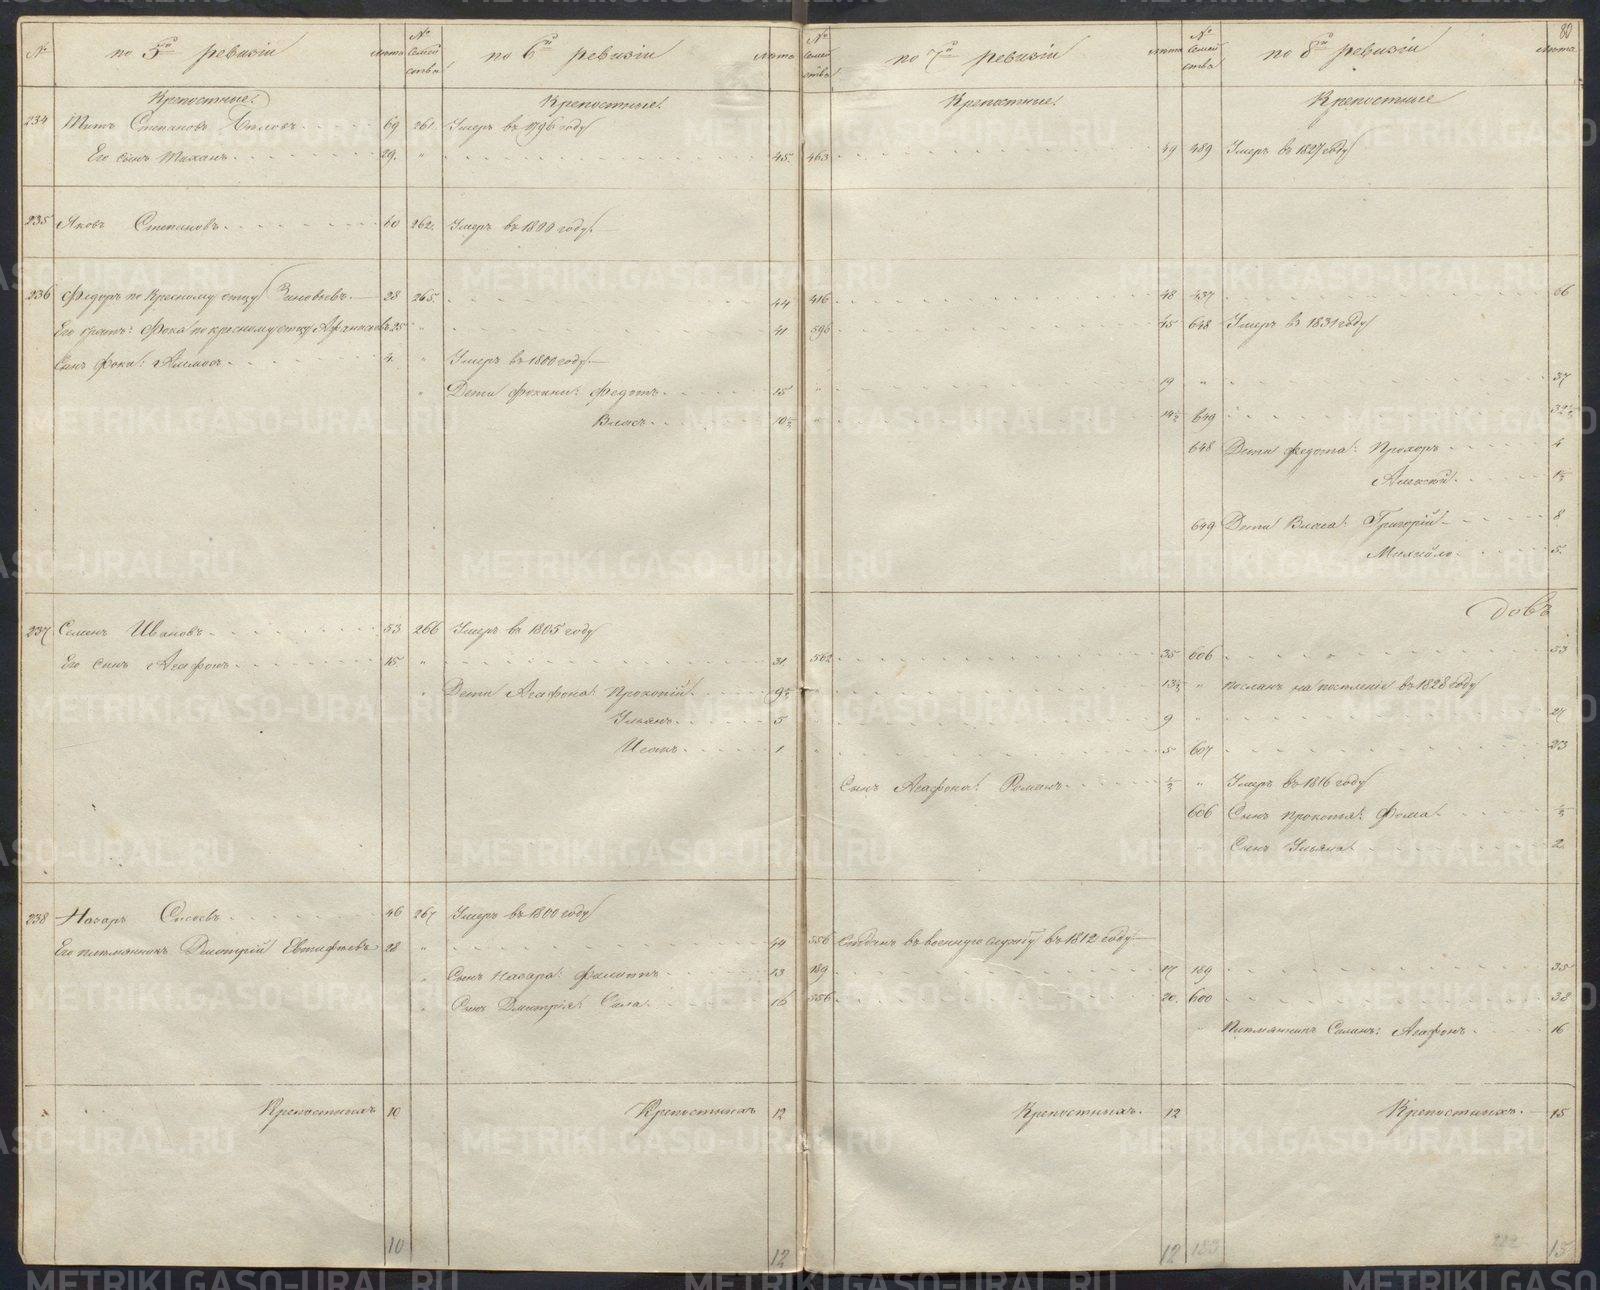 № по 5й ревизіи лѣта № Семейства по 6й ревизіи лѣта № Семейства по 7й ревизіи лѣта № Семейства по 8й ревизіи лѣта 80
Крѣпостные. Крѣпостные. Крѣпостные. Крѣпостные
234 Титъ Степановъ 69 261. Умеръ въ 1796 году
Его сынъ 29. " 45. 463 49 489 Умеръ въ 1827 году
235 Яковъ Степановъ 60 262. Умеръ въ 1800 году.
236 Федоръ по Кресному отцу Зиновьевъ. 28 265. 44 416 48 437 66
Его братъ: Фока по кресному отцу Афанасьевъ 25 " 41 596 45 648 Умеръ въ 1831 году
Сынъ Фоки: 4. " Умеръ въ 1800 году.
" Дети Фокины: Федотъ 15 " 19 " 37
Власъ 10½ " 14½ 649 32½
648 Дети Федота: Прохоръ 4
Алексѣй 1½
649 Дети Власа: Григорій 8
Михайло 5.
Довъ
237 Семенъ Ивановъ 53 266 Умеръ въ 1805 году
Его сынъ Агафонъ 15 " 31. 562 35 606 53
" Дети Агафона: Прокопій 9½ 13½ " Посланъ на поселеніе въ 1828 году
Ульянъ 5 " 9 " 27
Исакъ 1 " 5 607 23
Сынъ Агафона: Романъ ½ " Умеръ въ 1816 году
606 Сынъ Прокопья: Фома ½
" Сынъ Ульяна 2.
238 Назаръ Сысоевъ 46 267 Умеръ въ 1800 году
Его племянникъ Дмитрій Евтифеевъ 28 " 44 556 Отданъ въ военную службу въ 1812 году
" Сынъ Назара: 13 189 17 189 35
" Сынъ Дмитрія: Сила 16 556 20. 600 38
" Племянникъ Силанъ: Агафонъ 16
Крѣпостныхъ 10 Крѣпостныхъ 12 Крѣпостныхъ. 12 Крѣпостныхъ. 15
10 12 12 183 222 15
METRIKI.GASO-URAL.RU